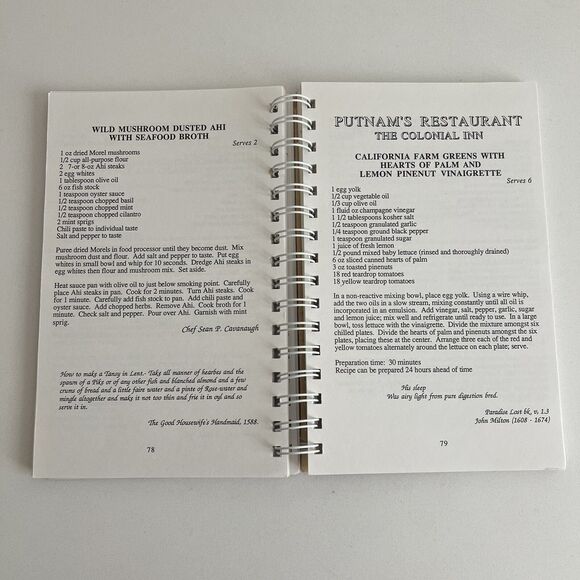 WILD MUSHROOM DUSTED AHI
WITH SEAFOOD BROTH
Serves 2
1 oz dried Morel mushrooms
1/2 cup all-purpose flour
2 7-or 8-oz Ahi steaks
2 egg whites
1 tablespoon olive oil
6 oz fish stock
1 teaspoon oyster sauce
1/2 teaspoon chopped basil
1/2 teaspoon chopped mint
1/2 teaspoon chopped cilantro
2 mint sprigs
Chili paste to individual taste
Salt and pepper to taste
Puree dried Morels in food processor until they become dust. Mix
mushroom dust and flour. Add salt and pepper to taste. Put egg
whites in small bowl and whip for 10 seconds. Dredge Ahi steaks in
egg whites then flour and mushroom mix. Set aside.
Heat sauce pan with olive oil to just below smoking point. Carefully
place Ahi steaks in pan. Cook for 2 minutes. Turn Ahi steaks. Cook
for 1 minute. Carefully add fish stock to pan. Add chili paste and
oyster sauce. Add chopped herbs. Remove Ahi. Cook broth for 1
minute. Check salt and pepper. Pour over Ahi. Garnish with mint
sprig.
Chef Sean P. Cavanaugh
How to make a Tansy in Lent.- Take all manner of hearbes and the
spawn of a Pike or of any other fish and blanched almond and a few
crums of bread and a little faire water and a pinte of Rose-water and
mingle altogether and make it not too thin and frie it in oyl and so
serve it in.
The Good Housewife's Handmaid, 1588.
78
PUTNAM'S RESTAURANT
THE COLONIAL INN
CALIFORNIA FARM GREENS WITH
HEARTS OF PALM AND
LEMON PINENUT VINAIGRETTE
Serves 6
1 egg yolk
1/2 cup vegetable oil
1/3 cup olive oil
1 fluid oz champagne vinegar
1 1/2 tablespoons kosher salt
1/2 teaspoon granulated garlic
1/4 teaspoon ground black pepper
1 teaspoon granulated sugar
1 juice of fresh lemon
1/2 pound mixed baby lettuce (rinsed and thoroughly drained)
6 oz sliced canned hearts of palm
3 oz toasted pinenuts
18 red teardrop tomatoes
18 yellow teardrop tomatoes
In a non-reactive mixing bowl, place egg yolk. Using a wire whip,
add the two oils in a slow stream, mixing constantly until all oil is
incorporated in an emulsion. Add vinegar, salt, pepper, garlic, sugar
and lemon juice; mix well and refrigerate until ready to use. In a large
bowl, toss lettuce with the vinaigrette. Divide the mixture amongst six
chilled plates. Divide the hearts of palm and pinenuts amongst the six
plates, placing these at the center. Arrange three each of the red and
yellow tomatoes alternately around the lettuce on each plate; serve.
Preparation time: 30 minutes
Recipe can be prepared 24 hours ahead of time
His sleep
Was airy light from pure digestion bred.
Paradise Lost bk, v, 1.3
John Milton (1608 - 1674)
79